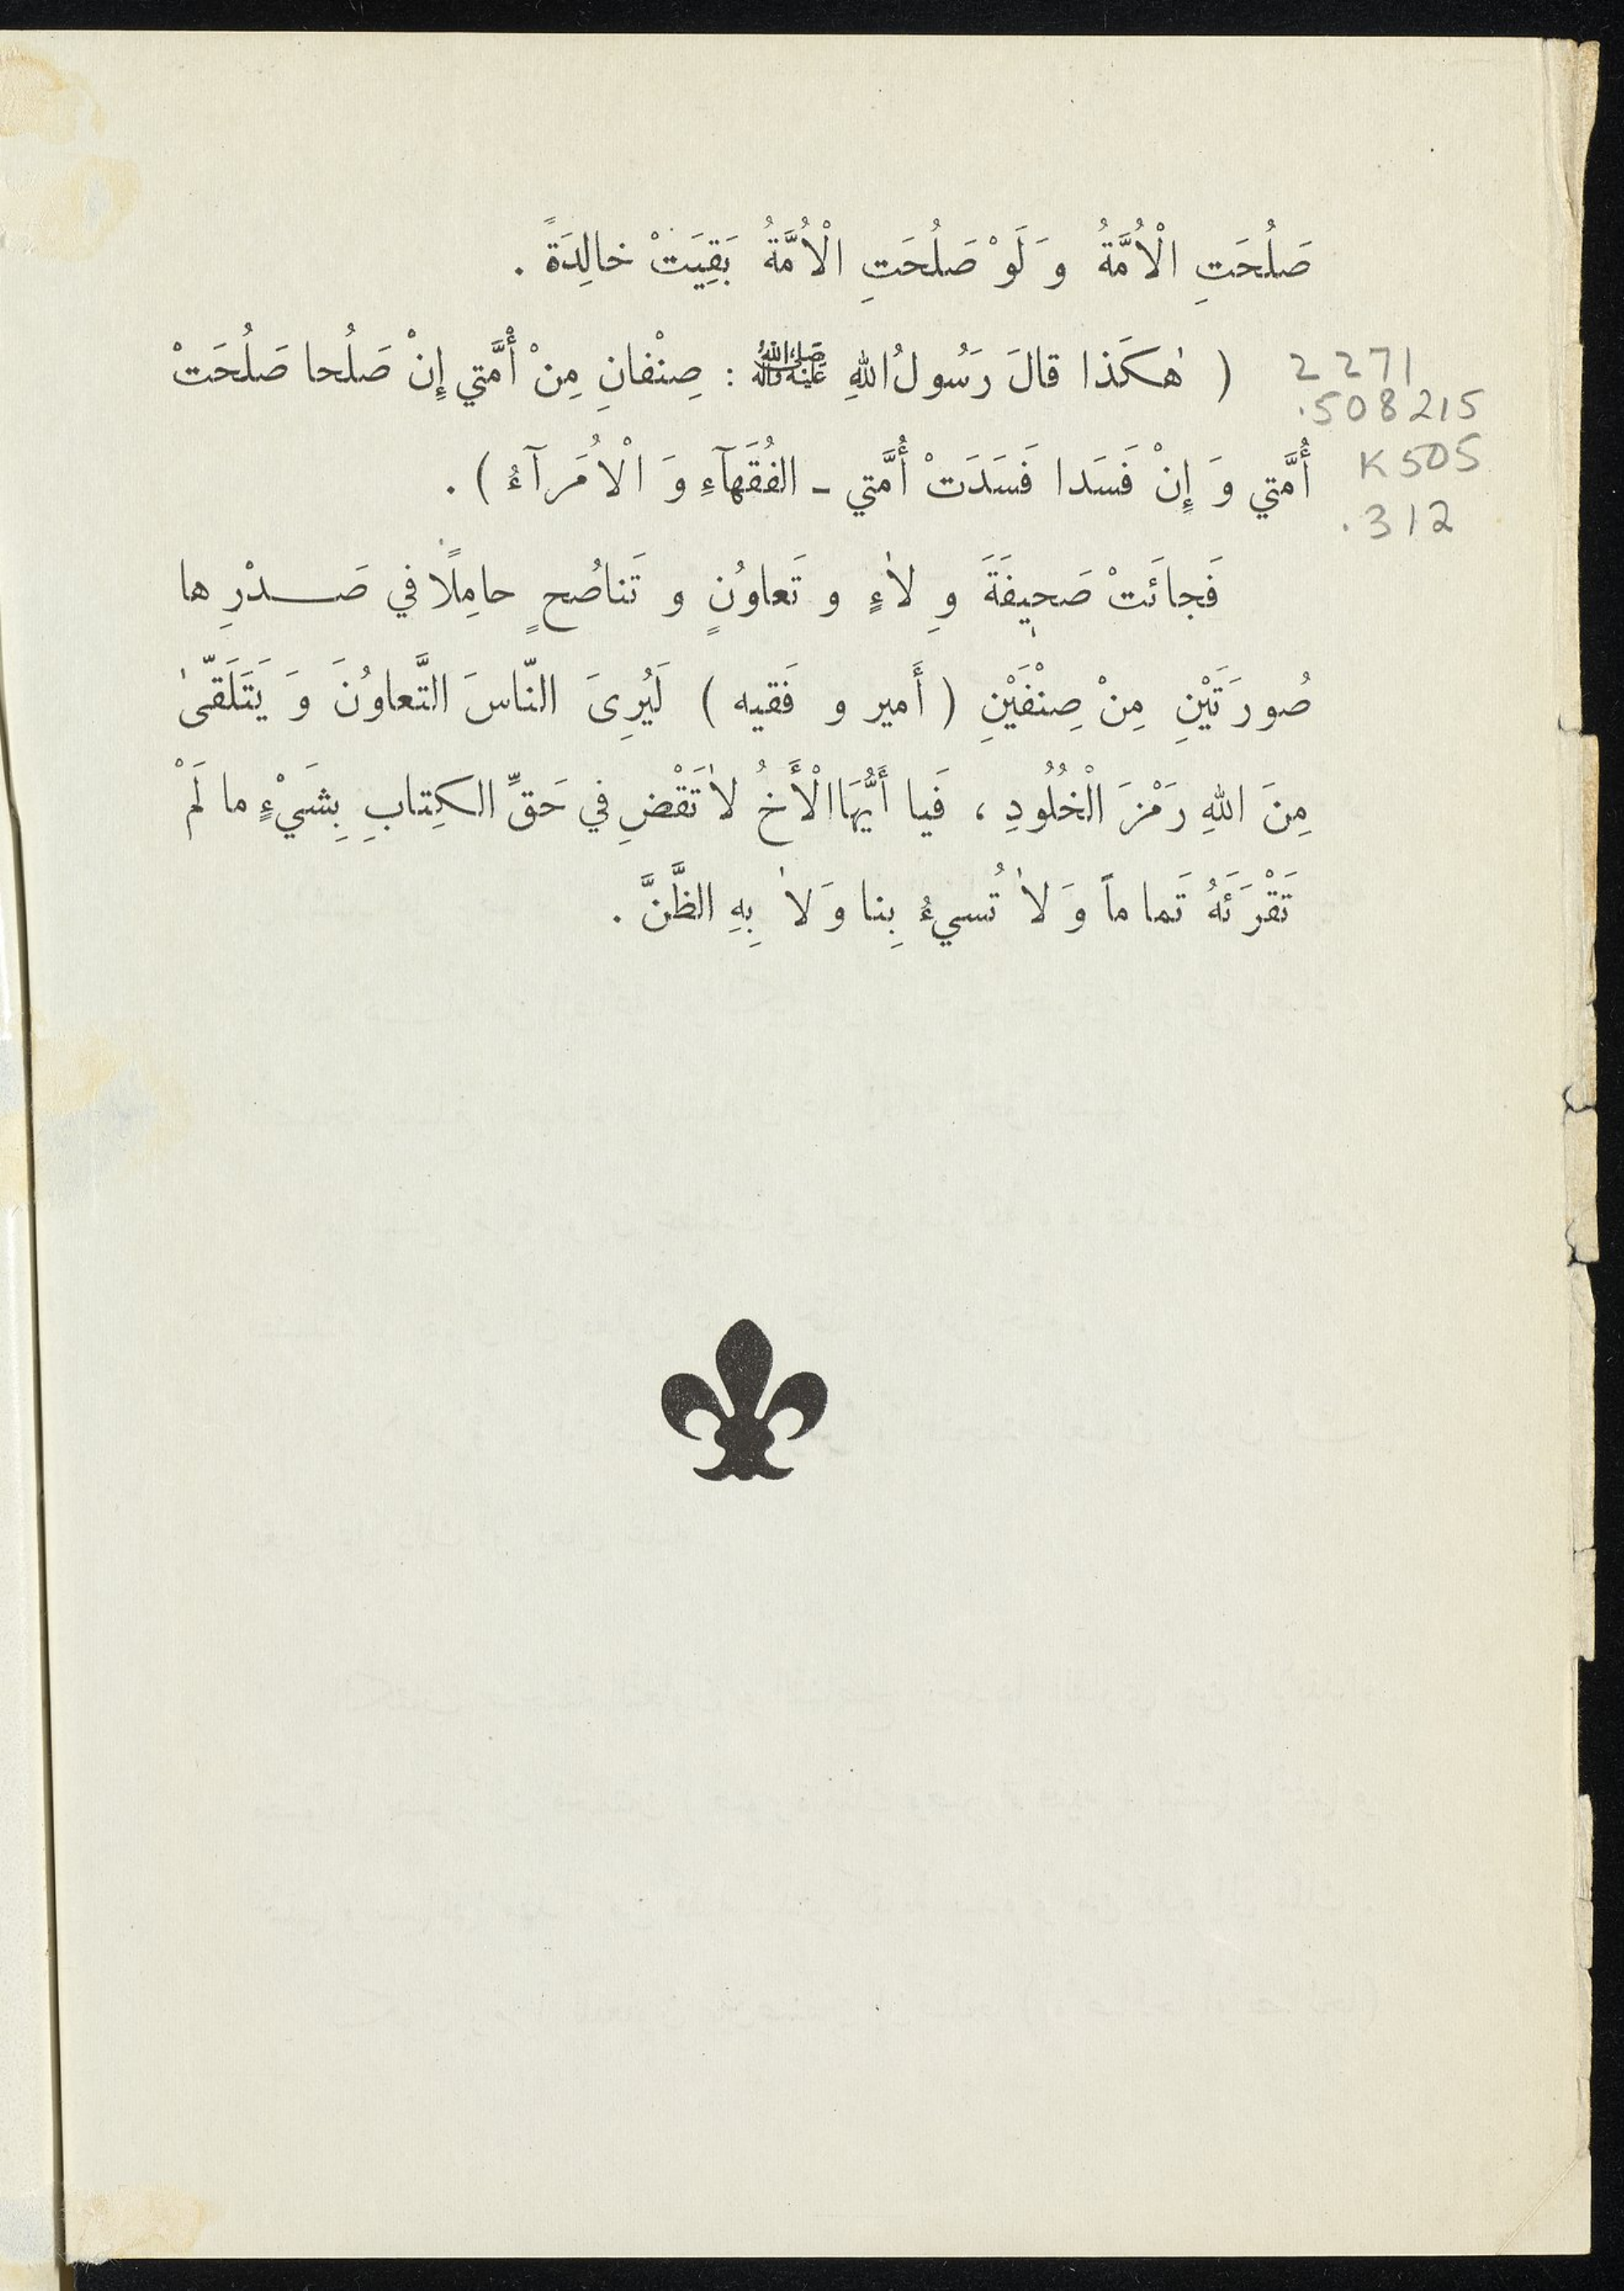 صَلُحَتِ الْاُمَّةُ وَ لَوْ صَلُحَتِ الْاُمَّةُ بَقِيَتْ خالِدَةً .
( هٰكَذا قالَ رَسُولُ اللهِ ﷺ : صِنْفانِ مِنْ أُمَّتي إِنْ صَلُحا صَلُحَتْ
أُمَّتي وَ إِنْ فَسَدا فَسَدَتْ أُمَّتي ـ الفُقَهآءِ وَ الْاُمَرآءُ ) .
فَجائَتْ صَحيفَةَ وِ لاٰءٍ و تَعاوُنٍ و تَناصُحٍ حامِلًا في صَـــدْرِ ها
صُورَتَيْنِ مِنْ صِنْفَيْنِ ( أَمير و فَقيه ) لَيُرِىَ النّاسَ التَّعاوُنَ وَ يَتَلَقّىٰ
مِنَ اللهِ رَمْزَ الْخُلُودِ ، فَيا أَيُّهَا الْأَخُ لاٰتَقْضِ في حَقِّ الكِتابِ بِشَيْءٍ ما لَمْ
تَقْرَئَهُ تَماماً وَ لاٰ تُسيءُ بِنا وَ لاٰ بِهِ الظَّنَّ .
2271
.508215
K505
.312